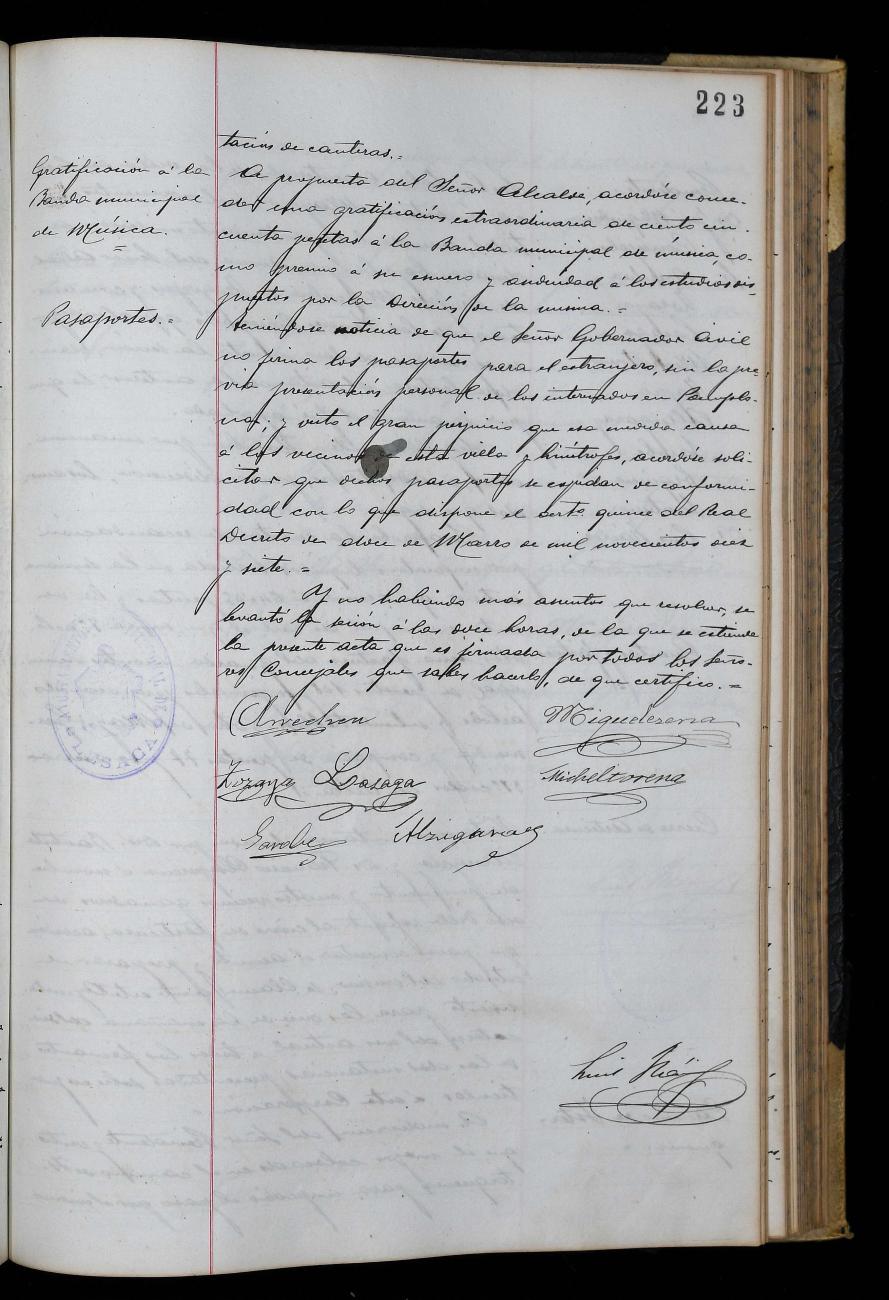 223
tación de canteras.=
Gratificación á la
Banda municipal
de Música.
=
A propuesta del Señor Alcalde, acordóse conce-
der una gratificación extraordinaria de ciento cin-
cuenta pesetas á la Banda municipal de música, co-
mo premio á su esmero y asiduidad á los estudios dis-
puestos por la Dirección de la misma.=
Pasaportes.=
Teniéndose noticia de que el Señor Gobernador Civil
no firma los pasaportes para el extranjero, sin la pre-
via presentación personal de los interesados en Pamplo-
na; y visto el gran perjuicio que esa medida causa
á los vecinos de esta villa y limítrofes, acordóse soli-
citar que dichos pasaportes se expidan de conformi-
dad con lo que dispone el art.º quince del Real
Decreto de doce de Marzo de mil novecientos diez
y siete.=
Y no habiendo más asuntos que resolver, se
levantó la sesión á las doce horas, de la que se extiende
la presente acta que es firmada por todos los Seño-
res Concejales que saben hacerlo, de que certifico.=
Arrechea
Miguelerena
Lasaga
Micheltorena
Alzigaray
Luis
LESACA